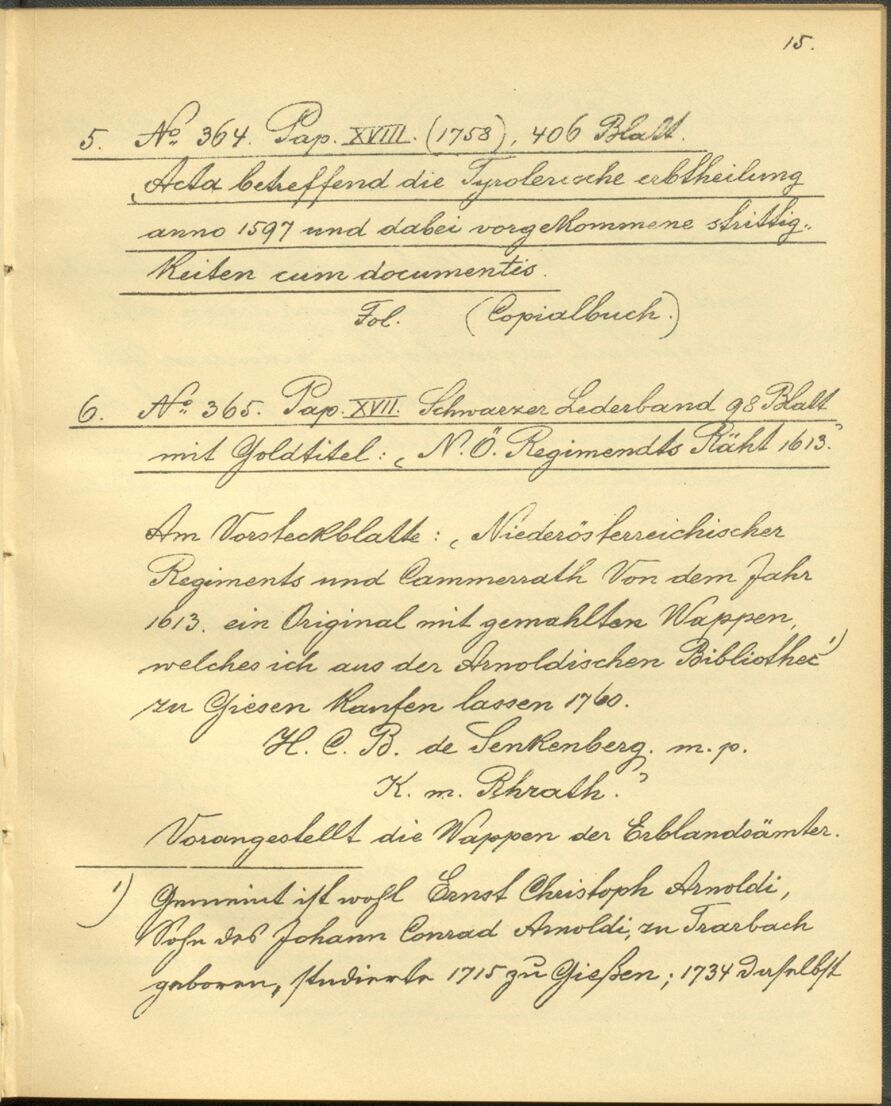 15.
5. No. 364. Pap. XVIII. (1758), 406 Blatt.
„Acta betreffend die Tyrolerische erbtheilung
anno 1597 und dabei vorgekommene strittig„
keiten cum documentis.
Fol. (Copialbuch.)
6. No. 365. Pap. XVII. Schwarzer Lederband 98 Blatt
mit Goldtitel: „N. Ö. Regimendts Räht 1613."
Am Vorsteckblatte: „Niederösterreichischer
Regiments und Cammerrath Von dem Jahr
1613. ein Original mit gemahlten Wappen,
welches ich aus der Arnoldischen Bibliothec 1)
zu Giesen kaufen lassen 1760.
H. C. B. de Senkenberg. m. p.
K. m. Rhrath."
Vorangestellt die Wappen der Erblandsämter.
1) Gemeint ist wohl Ernst Christoph Arnoldi,
Sohn des Johann Conrad Arnoldi, zu Trarbach
geboren, studierte 1715 zu Gießen; 1734 daselbst